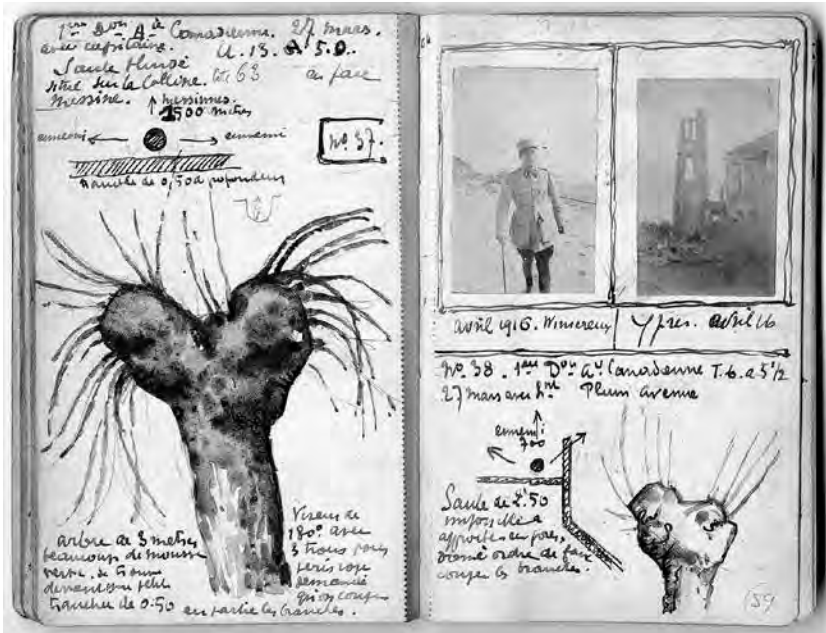 1ère Don Ae Canadienne. 27 mars.
avec capitaine. U. 13. A 5.0.
Saule situé sur la Colline. cote 63 en face
messine.
↑ messinnes.
1500 mètres
ennemi ← → ennemi
No. 37.
tranchée de 0,50 de profondeur
arbre de 3 mètres
beaucoup de mousse
verte. se trouve
devant un petit
tranchée de 0.50 en partie les branches.
Viseur de
180° avec
3 trous pour
périscope
demandé
qu'on coupe
avril 1916. Wimereux
Ypres. avril 16
No. 38. 1ère Don Ae Canadienne T.6. a 5 1/2
27 mars avec Plum Avenue
ennemi
700
Saule de 2.50
impossible
apporter
donné ordre de faire
couper les branches.
(59)